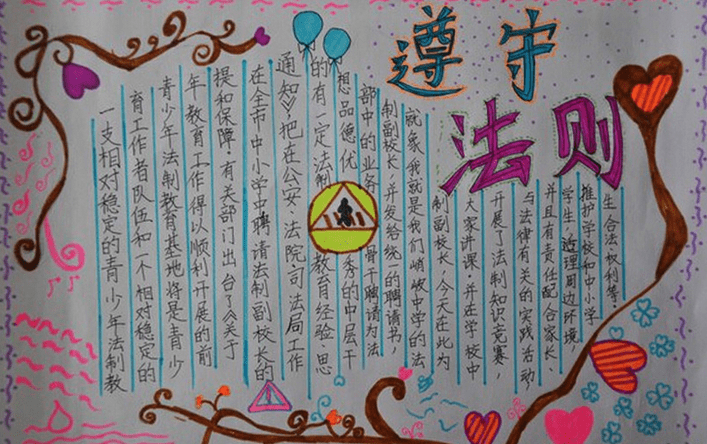 遵守
法则
生合法权利等,
推护学校和中小学
学生,理周边环境,
并且有责任配合家长、
与法律有关的实践活动
开展了法制知识竞赛,
大家讲课,并在学校中
制副校长,今天在此为
就象我就是我们峭岐中学的法
制副校长,并发给统一的聘请书,
部中的业务骨干聘请为法
想品德优秀的中层干
的有一定法制教育经验、思
通知》,把在公安、法院司法局工作
在全市中小学中聘请法制副校长的
提和保障,有关部门出台了《关于
年教育工作得以顺利开展的前
青少年法制教育基地将是青少
育工作者队伍和一个相对稳定的
一支相对稳定的青少年法制教